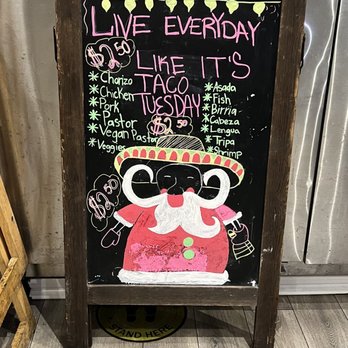 LIVE EVERYDAY
$2.50
LIKE IT'S
TACO
TUESDAY
* Charizo
* Chicken
* Pork
* Pastor
* Vegan Pastor
* Veggies
* Asada
* Fish
* Birria
* Cabeza
* Lengua
* Tripa
* Shrimp
$2.50
$2.50
STAND HERE